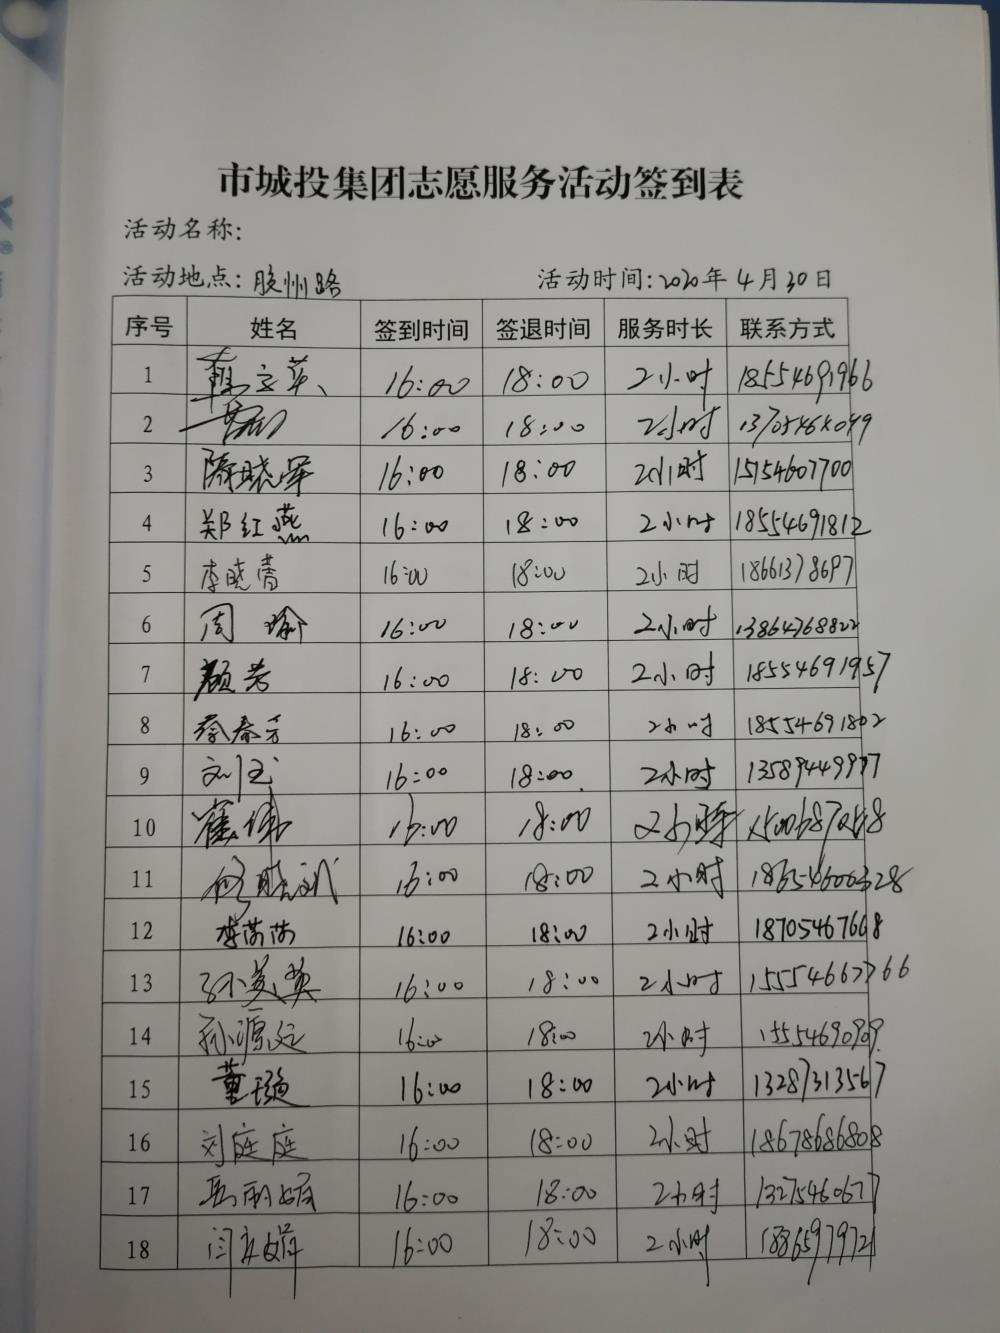 市城投集团志愿服务活动签到表
活动名称:
活动地点: 胶州路 活动时间:2020年4月30日
序号 姓名 签到时间 签退时间 服务时长 联系方式
1 16:00 18:00 2小时 18554691966
2 16:00 18:00 2小时
3 隋晓军 16:00 18:00 2小时 15154607700
4 郑红燕 16:00 18:00 2小时 18554691812
5 李晓菁 16:00 18:00 2小时 18661378697
6 周瑜 16:00 18:00 2小时 13864768822
7 颜芳 16:00 18:00 2小时 18554691957
8 蔡春芳 16:00 18:00 2小时 18554691802
9 刘玉 16:00 18:00 2小时 13589449977
10 崔伟 16:00 18:00 2小时
11 16:00 18:00 2小时 18654600328
12 李芮芮 16:00 18:00 2小时 18705467668
13 孙美英 16:00 18:00 2小时 15554667766
14 孙源远 16:00 18:00 2小时 15554690909
15 董璇 16:00 18:00 2小时 13287313567
16 刘庭庭 16:00 18:00 2小时 18678686808
17 16:00 18:00 2小时 13275460677
18 16:00 18:00 2小时 18865979721